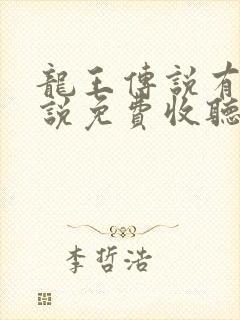 龍王傳說有
說免費收聽
李哲浩